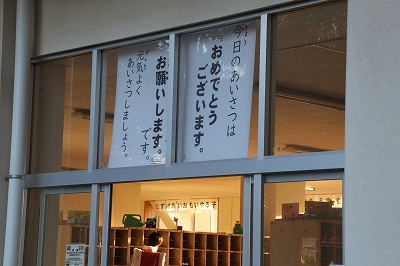 今日のあいさつは
おめでとう
ございます。
お願いします。
です。
元気よく
あいさつしましょう。